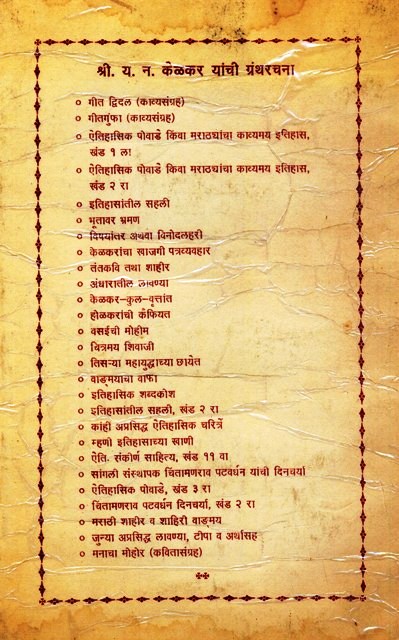 श्री. य. न. केळकर यांची ग्रंथरचना
० गीत द्विदल (काव्यसंग्रह)
० गीतगुंफा (काव्यसंग्रह)
० ऐतिहासिक पोवाडे किंवा मराठ्यांचा काव्यमय इतिहास,
खंड १ ला
० ऐतिहासिक पोवाडे किंवा मराठ्यांचा काव्यमय इतिहास,
खंड २ रा
० इतिहासांतील सहली
० भूतावर भ्रमण
० विषयांतर अथवा विनोदलहरी
० केळकरांचा खाजगी पत्रव्यवहार
० तंतकवि तथा शाहीर
० अंधारातील लावण्या
० केळकर-कुल-वृत्तांत
० होळकरांची कैफियत
० वसईची मोहीम
० चित्रमय शिवाजी
० तिसऱ्या महायुद्धाच्या छायेत
० वाङ्मयाचा वाफा
० इतिहासिक शब्दकोश
० इतिहासांतील सहली, खंड २ रा
० कांही अप्रसिद्ध ऐतिहासिक चरित्रें
० म्हणी इतिहासाच्या खाणी
० ऐति. संकीर्ण साहित्य, खंड ११ वा
० सांगली संस्थापक चिंतामणराव पटवर्धन यांची दिनचर्या
० ऐतिहासिक पोवाडे, खंड ३ रा
० चिंतामणराव पटवर्धन दिनचर्या, खंड २ रा
० मराठी शाहीर व शाहिरी वाङ्मय
० जुन्या अप्रसिद्ध लावण्या, टीपा व अर्थासह
० मनाचा मोहोर (कवितासंग्रह)